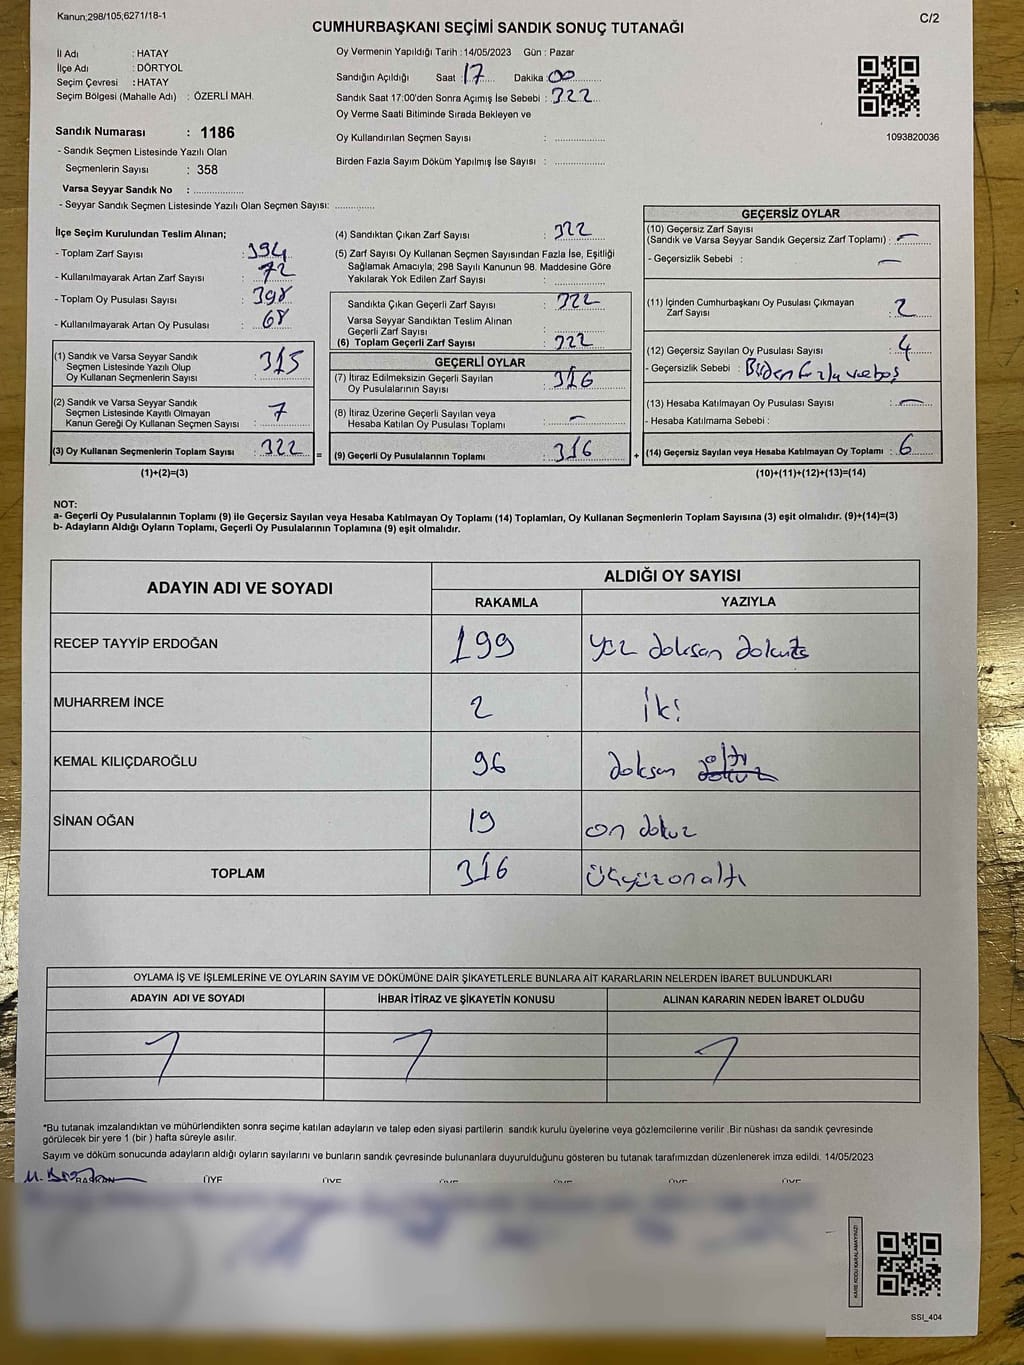 Kanun;298/105;6271/18-1
C/2
CUMHURBAŞKANI SEÇİMİ SANDIK SONUÇ TUTANAĞI
İl Adı : HATAY
İlçe Adı : DÖRTYOL
Seçim Çevresi : HATAY
Seçim Bölgesi (Mahalle Adı) : ÖZERLİ MAH.
Sandık Numarası : 1186
- Sandık Seçmen Listesinde Yazılı Olan
Seçmenlerin Sayısı : 358
Varsa Seyyar Sandık No : ....................
- Seyyar Sandık Seçmen Listesinde Yazılı Olan Seçmen Sayısı: ................
Oy Vermenin Yapıldığı Tarih :14/05/2023 Gün : Pazar
Sandığın Açıldığı Saat : 17 Dakika : 00
Sandık Saat 17:00'den Sonra Açımış İse Sebebi : 322
Oy Verme Saati Bitiminde Sırada Bekleyen ve
Oy Kullandırılan Seçmen Sayısı : ....................
Birden Fazla Sayım Döküm Yapılmış İse Sayısı : ....................
1093820036
İlçe Seçim Kurulundan Teslim Alınan;
- Toplam Zarf Sayısı : 394
- Kullanılmayarak Artan Zarf Sayısı : 72
- Toplam Oy Pusulası Sayısı : 398
- Kullanılmayarak Artan Oy Pusulası : 68
(1) Sandık ve Varsa Seyyar Sandık
Seçmen Listesinde Yazılı Olup
Oy Kullanan Seçmenlerin Sayısı : 315
(2) Sandık ve Varsa Seyyar Sandık
Seçmen Listesinde Kayıtlı Olmayan
Kanun Gereği Oy Kullanan Seçmen Sayısı : 7
(3) Oy Kullanan Seçmenlerin Toplam Sayısı : 322
(1)+(2)=(3)
=
(4) Sandıktan Çıkan Zarf Sayısı : 322
(5) Zarf Sayısı Oy Kullanan Seçmen Sayısından Fazla İse, Eşitliği
Sağlamak Amacıyla; 298 Sayılı Kanunun 98. Maddesine Göre
Yakılarak Yok Edilen Zarf Sayısı : ....................
Sandıkta Çıkan Geçerli Zarf Sayısı : 322
Varsa Seyyar Sandıktan Teslim Alınan
Geçerli Zarf Sayısı : ....................
(6) Toplam Geçerli Zarf Sayısı : 322
GEÇERLİ OYLAR
(7) İtiraz Edilmeksizin Geçerli Sayılan
Oy Pusulalarının Sayısı : 316
(8) İtiraz Üzerine Geçerli Sayılan veya
Hesaba Katılan Oy Pusulası Toplamı : –
(9) Geçerli Oy Pusulalarının Toplamı : 316
+
GEÇERSİZ OYLAR
(10) Geçersiz Zarf Sayısı
(Sandık ve Varsa Seyyar Sandık Geçersiz Zarf Toplamı) : –
- Geçersizlik Sebebi : –
(11) İçinden Cumhurbaşkanı Oy Pusulası Çıkmayan
Zarf Sayısı : 2
(12) Geçersiz Sayılan Oy Pusulası Sayısı : 4
- Geçersizlik Sebebi : Birden fazla ve boş
(13) Hesaba Katılmayan Oy Pusulası Sayısı : –
- Hesaba Katılmama Sebebi :
(14) Geçersiz Sayılan veya Hesaba Katılmayan Oy Toplamı : 6
(10)+(11)+(12)+(13)=(14)
NOT:
a- Geçerli Oy Pusulalarının Toplamı (9) ile Geçersiz Sayılan veya Hesaba Katılmayan Oy Toplamı (14) Toplamları, Oy Kullanan Seçmenlerin Toplam Sayısına (3) eşit olmalıdır. (9)+(14)=(3)
b- Adayların Aldığı Oyların Toplamı, Geçerli Oy Pusulalarının Toplamına (9) eşit olmalıdır.
ADAYIN ADI VE SOYADI ALDIĞI OY SAYISI
RAKAMLA YAZIYLA
RECEP TAYYİP ERDOĞAN 199 yüz doksan dokuz
MUHARREM İNCE 2 iki
KEMAL KILIÇDAROĞLU 96 doksan altı dokuz
SİNAN OĞAN 19 on dokuz
TOPLAM 316 üçyüzonaltı
OYLAMA İŞ VE İŞLEMLERİNE VE OYLARIN SAYIM VE DÖKÜMÜNE DAİR ŞİKAYETLERLE BUNLARA AİT KARARLARIN NELERDEN İBARET BULUNDUKLARI
ADAYIN ADI VE SOYADI İHBAR İTİRAZ VE ŞİKAYETİN KONUSU ALINAN KARARIN NEDEN İBARET OLDUĞU
*Bu tutanak imzalandıktan ve mühürlendikten sonra seçime katılan adayların ve talep eden siyasi partilerin sandık kurulu üyelerine veya gözlemcilerine verilir .Bir nüshası da sandık çevresinde
görülecek bir yere 1 (bir ) hafta süreyle asılır.
Sayım ve döküm sonucunda adayların aldığı oyların sayılarını ve bunların sandık çevresinde bulunanlara duyurulduğunu gösteren bu tutanak tarafımızdan düzenlenerek imza edildi. 14/05/2023
BAŞKAN ÜYE ÜYE ÜYE ÜYE ÜYE ÜYE
KARE KODU KARALAMAYINIZ!
SSI_404